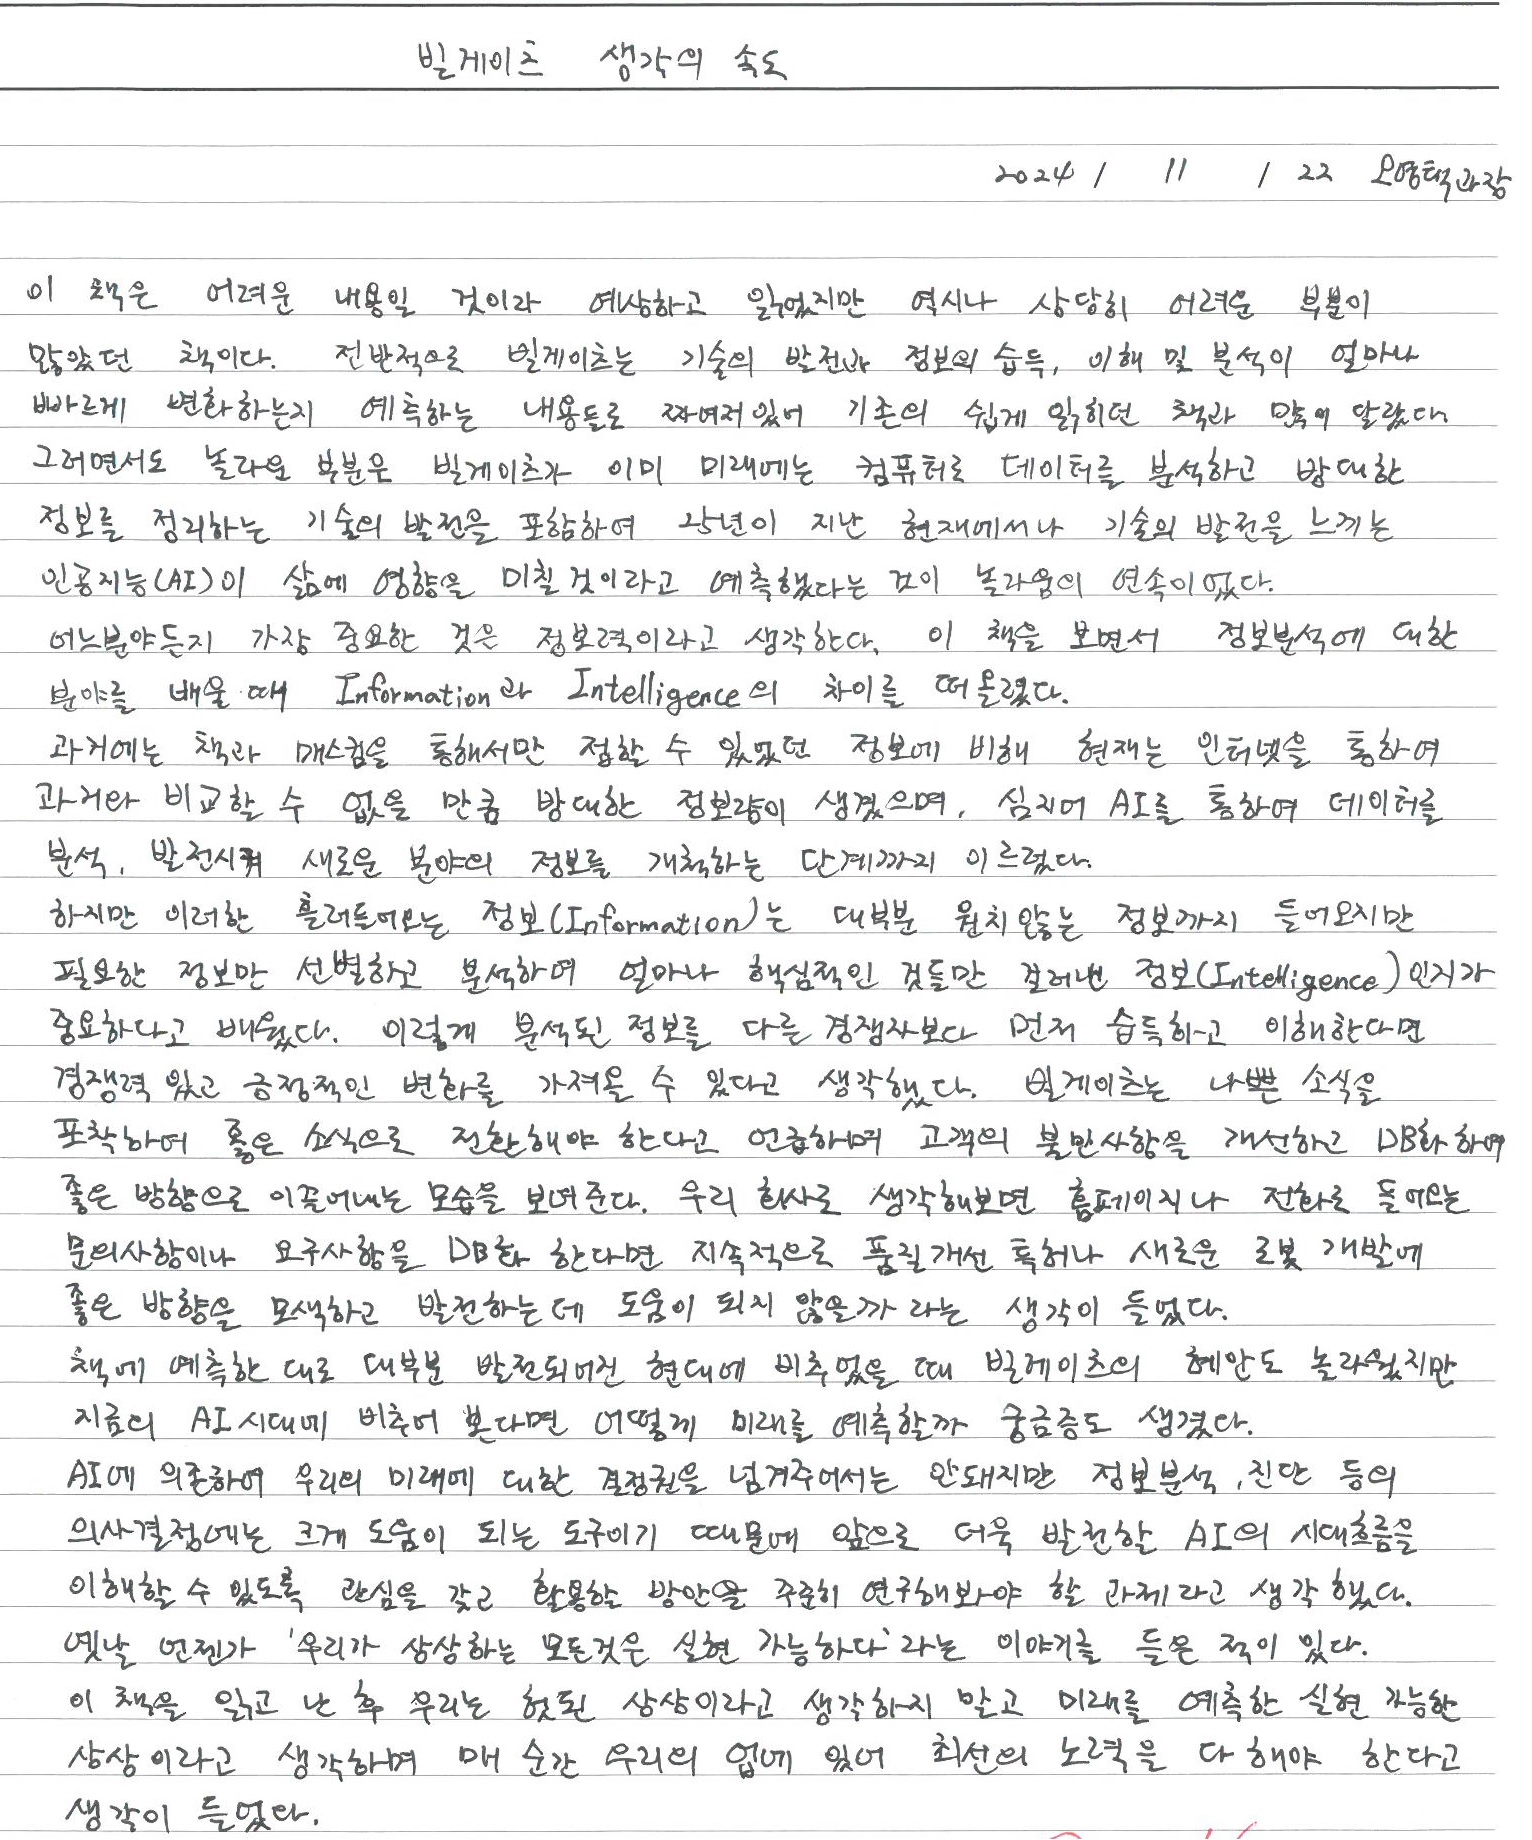 빌게이츠 생각의 속도
2024 / 11 / 22 오영택과장
이 책은 어려운 내용일 것이라 예상하고 읽었지만 역시나 상당히 어려운 부분이
많았던 책이다. 전반적으로 빌게이츠는 기술의 발전과 정보의 습득, 이해 및 분석이 얼마나
빠르게 변화하는지 예측하는 내용들로 짜여져있어 기존의 쉽게 읽히던 책과 많이 달랐다.
그러면서도 놀라운 부분은 빌게이츠가 이미 미래에는 컴퓨터로 데이터를 분석하고 방대한
정보를 정리하는 기술의 발전을 포함하여 25년이 지난 현재에서나 기술의 발전을 느끼는
인공지능(AI)이 삶에 영향을 미칠것이라고 예측했다는 것이 놀라움의 연속이었다.
어느분야든지 가장 중요한 것은 정보력이라고 생각한다. 이 책을 보면서 정보분석에 대한
분야를 배울 때 Information과 Intelligence의 차이를 떠올렸다.
과거에는 책과 매스컴을 통해서만 접할 수 있었던 정보에 비해 현재는 인터넷을 통하여
과거와 비교할 수 없을 만큼 방대한 정보량이 생겼으며, 심지어 AI를 통하여 데이터를
분석, 발전시켜 새로운 분야의 정보를 개척하는 단계까지 이르렀다.
하지만 이러한 흘러들어오는 정보(Information)는 대부분 원치않는 정보까지 들어오지만
필요한 정보만 선별하고 분석하여 얼마나 핵심적인 것들만 걸러낸 정보(Intelligence)인지가
중요하다고 배웠다. 이렇게 분석된 정보를 다른 경쟁자보다 먼저 습득하고 이해한다면
경쟁력 있고 긍정적인 변화를 가져올 수 있다고 생각했다. 빌게이츠는 나쁜 소식을
포착하여 좋은 소식으로 전환해야 한다고 언급하며 고객의 불만사항을 개선하고 DB화하여
좋은 방향으로 이끌어내는 모습을 보여준다. 우리 회사로 생각해보면 홈페이지나 전화로 들어오는
문의사항이나 요구사항을 DB화 한다면 지속적으로 품질개선 특허나 새로운 로봇 개발에
좋은 방향을 모색하고 발전하는데 도움이 되지 않을까 라는 생각이 들었다.
책에 예측한 대로 대부분 발전되어진 현대에 비추었을 때 빌게이츠의 혜안도 놀라웠지만
지금의 AI시대에 비추어 본다면 어떻게 미래를 예측할까 궁금증도 생겼다.
AI에 의존하여 우리의 미래에 대한 결정권을 넘겨주어서는 안돼지만 정보분석, 진단 등의
의사결정에는 크게 도움이 되는 도구이기 때문에 앞으로 더욱 발전할 AI의 시대흐름을
이해할 수 있도록 관심을 갖고 활용할 방안을 꾸준히 연구해봐야 할 과제라고 생각했다.
옛날 언젠가 '우리가 상상하는 모든것은 실현 가능하다'라는 이야기를 들은 적이 있다.
이 책을 읽고 난 후 우리는 헛된 상상이라고 생각하지 말고 미래를 예측한 실현 가능한
상상이라고 생각하며 매 순간 우리의 업에 있어 최선의 노력을 다해야 한다고
생각이 들었다.